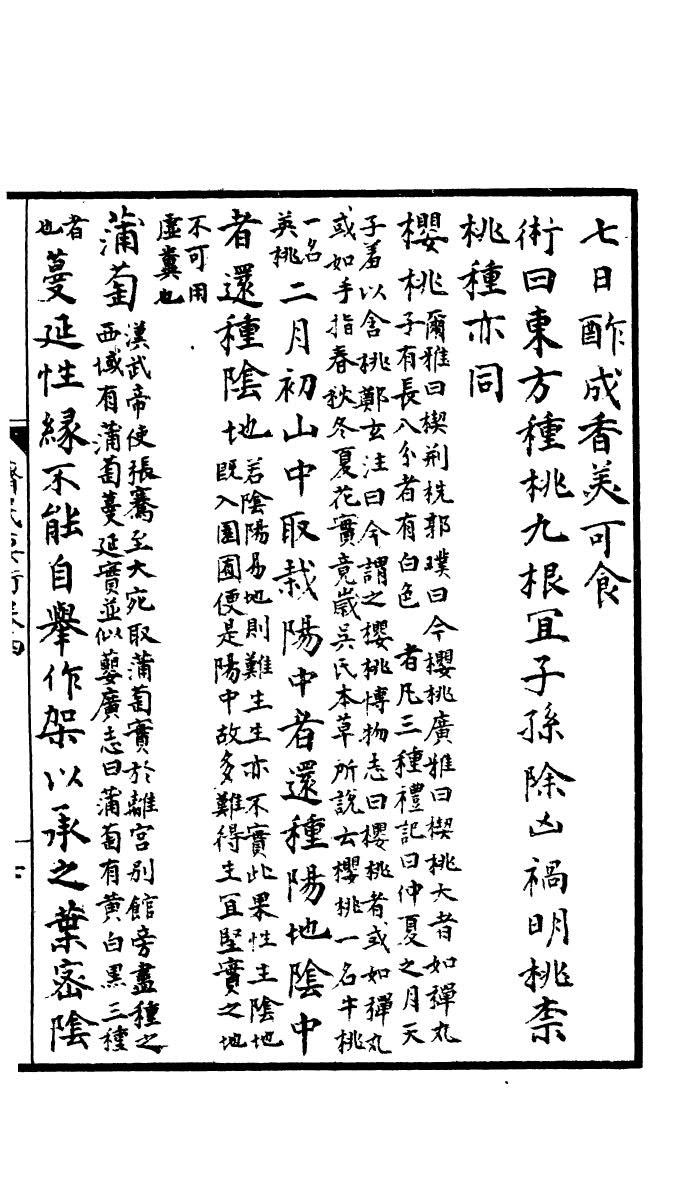 七日酢成香美可食
術曰東方種桃九根宜子孫除凶禍明桃柰
桃種亦同
櫻桃
爾雅曰楔荊桃郭璞曰今櫻桃廣雅曰楔桃大者如彈丸
子有長八分者有白色 者凡三種禮記曰仲夏之月天
子羞以含桃鄭玄注曰今謂之櫻桃博物志曰櫻桃者或如彈丸
或如手指春秋冬夏花實竟歲吳氏本草所說云櫻桃一名牛桃
一名
英桃
二月初山中取栽陽中者還種陽地陰中
者還種陰地
若陰陽易地則難生生亦不實此果性生陰地
既入園囿便是陽中故多難得生宜堅實之地
不可用
虛糞也
蒲萄
漢武帝使張騫至大宛取蒲萄實於離宮別館旁盡種之
西域有蒲萄蔓延實並似蘡廣志曰蒲萄有黄白黑三種
者
也
蔓延性緣不能自舉作架以承之葉密陰
齊民要術卷四